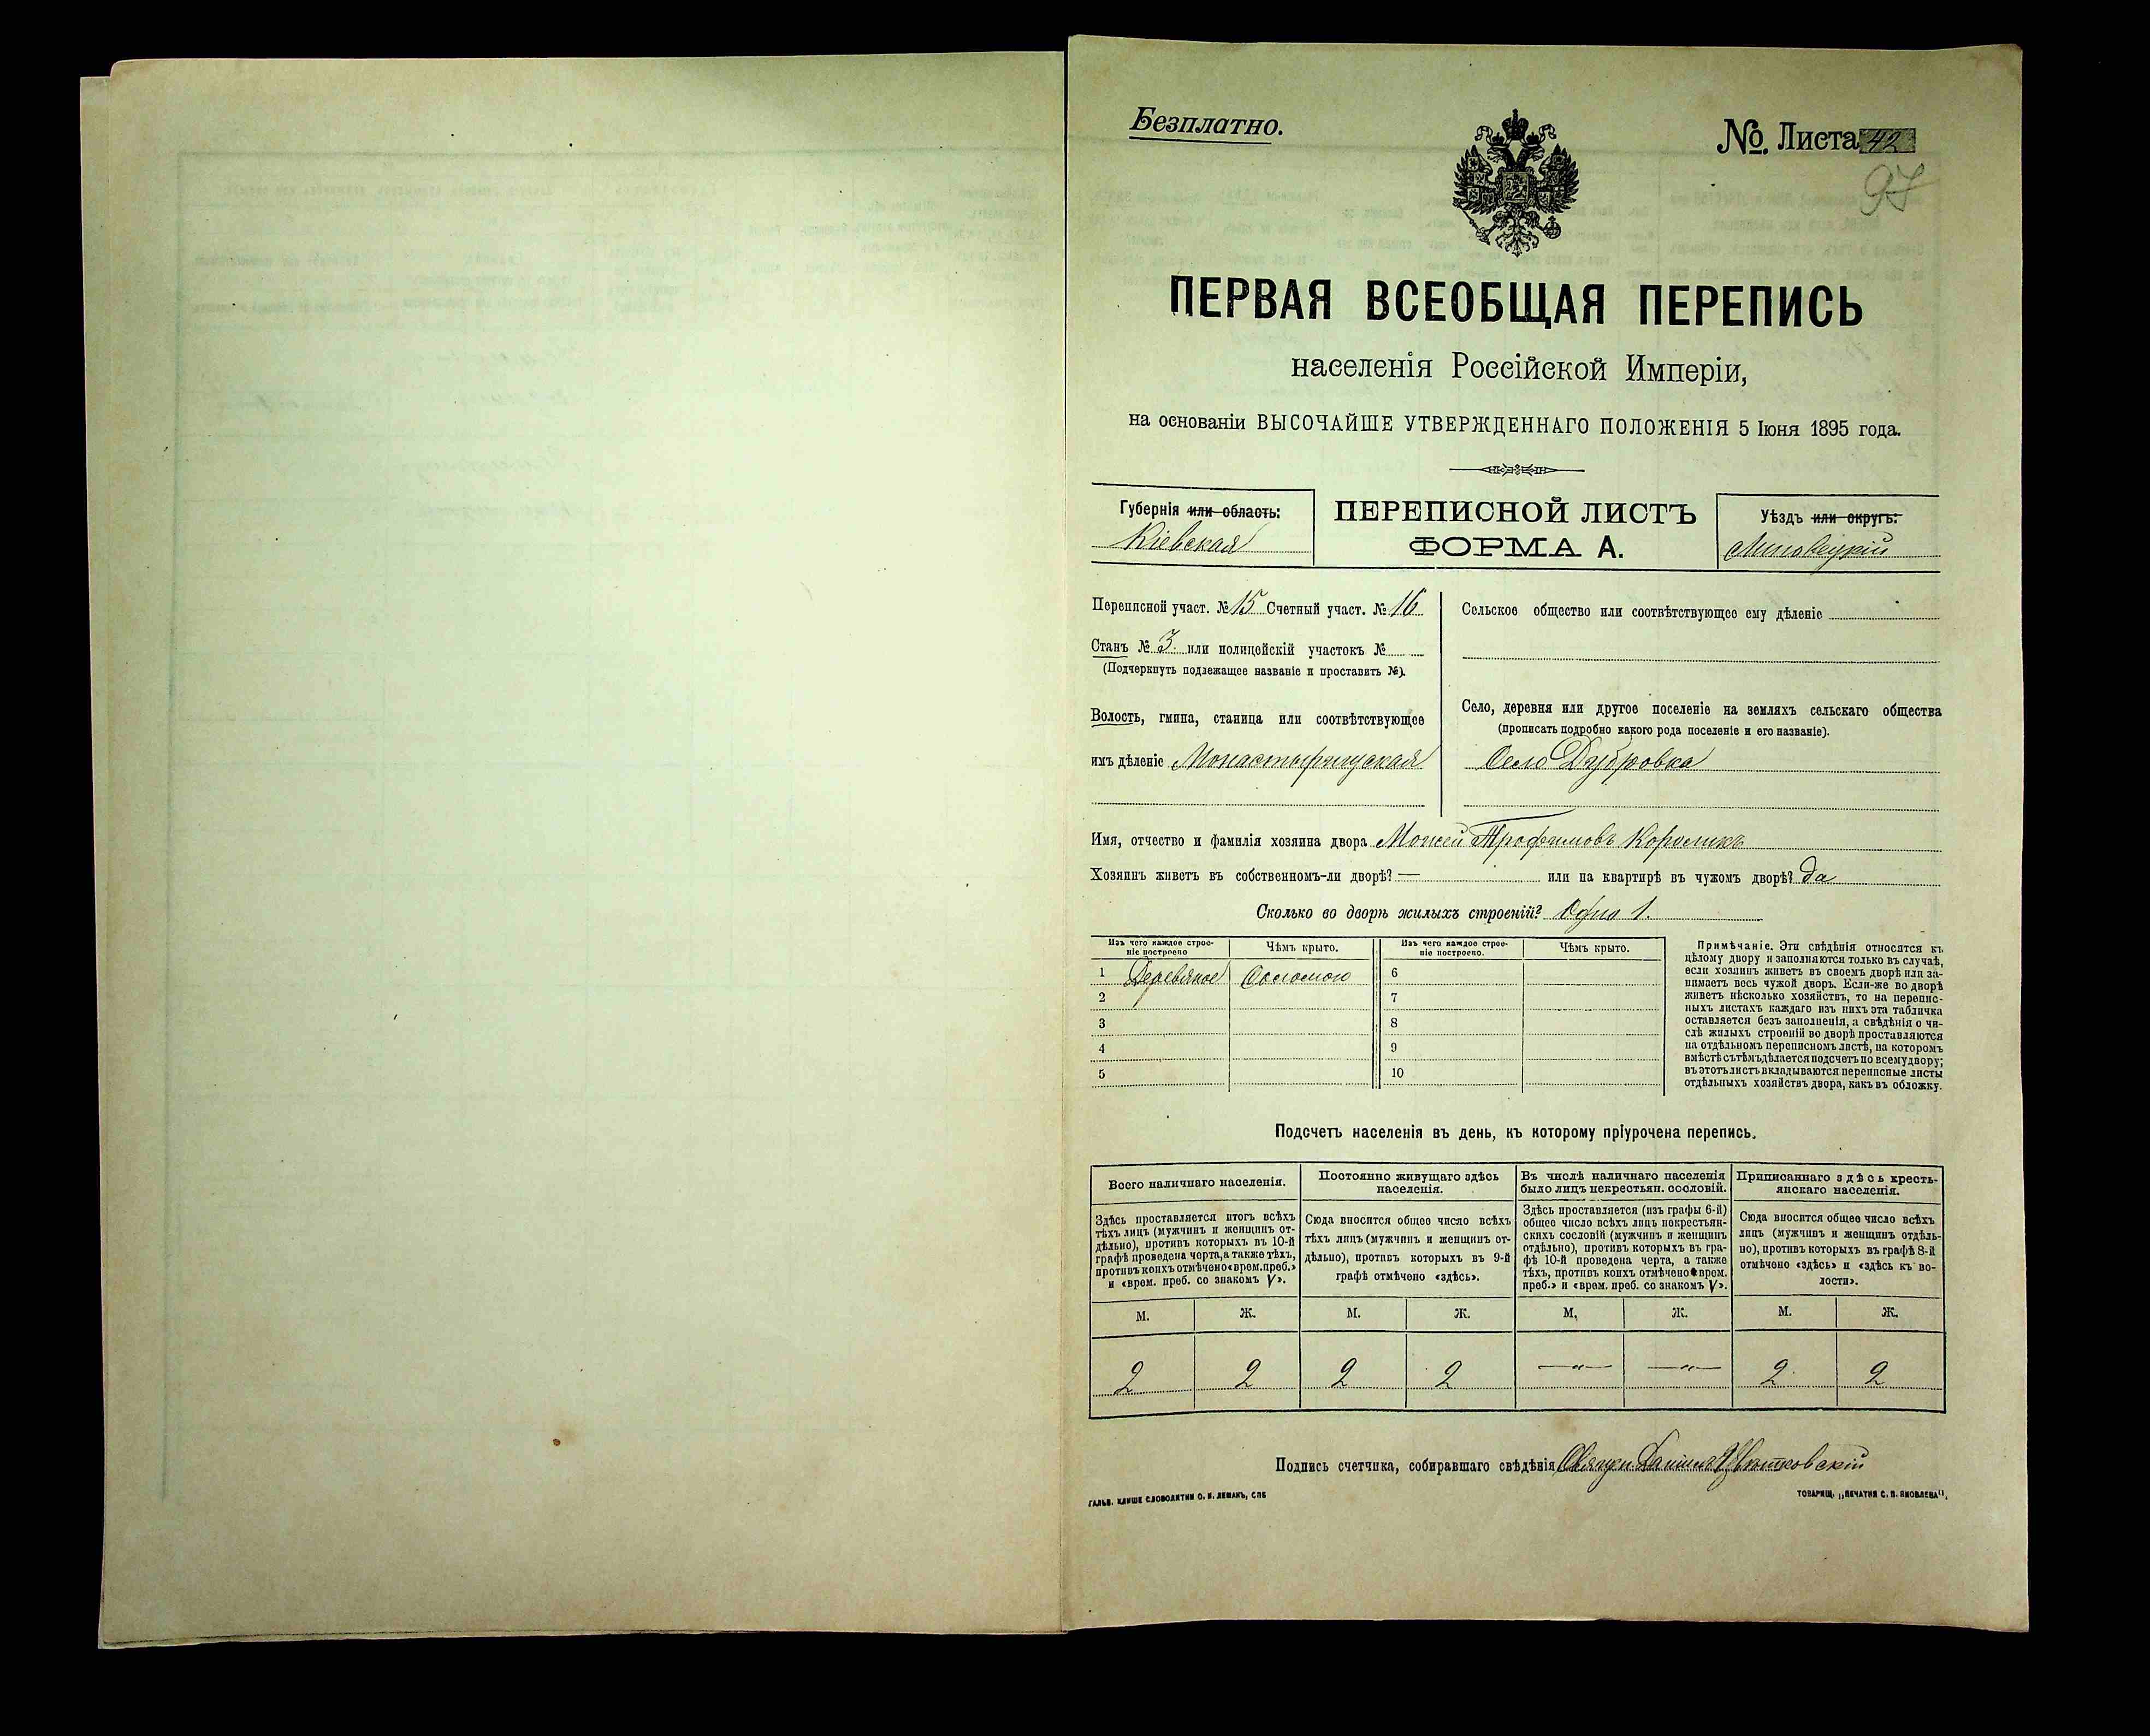 Безплатно.
№. Листа 42
97
ПЕРВАЯ ВСЕОБЩАЯ ПЕРЕПИСЬ
населенія Россійской Имперіи,
на основаніи ВЫСОЧАЙШЕ УТВЕРЖДЕННАГО ПОЛОЖЕНІЯ 5 Іюня 1895 года.
Губернія или область:
Кіевская
ПЕРЕПИСНОЙ ЛИСТЪ
ФОРМА А.
Уѣздъ или округъ:
Липовецкій
Переписной участ. № 15 Счетный участ. № 16
Станъ № 3. или полицейскій участокъ №
(Подчеркнуть подлежащее названіе и проставить №).
Волость, гмина, станица или соотвѣтствующее
имъ дѣленіе Монастырищская
Сельское общество или соотвѣтствующее ему дѣленіе
Село, деревня или другое поселеніе на земляхъ сельскаго общества
(прописать подробно какого рода поселеніе и его названіе).
Село Дубровка
Имя, отчество и фамилія хозяина двора Мокей Трофимовъ Короликъ
Хозяинъ живетъ въ собственномъ-ли дворѣ? — или на квартирѣ въ чужомъ дворѣ? да
Сколько во дворѣ жилыхъ строеній? Одно 1.
Изъ чего каждое строе-
ніе построено
Чѣмъ крыто.
Изъ чего каждое строе-
ніе построено.
Чѣмъ крыто.
1 Деревяное Соломою 6
2 7
3 8
4 9
5 10
Примѣчаніе. Эти свѣдѣнія относятся къ
цѣлому двору и заполняются только въ случаѣ,
если хозяинъ живетъ въ своемъ дворѣ или за-
нимаетъ весь чужой дворъ. Если-же во дворѣ
живетъ нѣсколько хозяйствъ, то на перепис-
ныхъ листахъ каждаго изъ нихъ эта табличка
оставляется безъ заполненія, а свѣдѣнія о чи-
слѣ жилыхъ строеній во дворѣ проставляются
на отдѣльномъ переписномъ листѣ, на которомъ
вмѣстѣ съ тѣмъ дѣлается подсчетъ по всему двору;
въ этотъ листъ вкладываются переписные листы
отдѣльныхъ хозяйствъ двора, какъ въ обложку.
Подсчетъ населенія въ день, къ которому пріурочена перепись.
Всего наличнаго населенія.
Здѣсь проставляется итогъ всѣхъ
тѣхъ лицъ (мужчинъ и женщинъ от-
дѣльно), противъ которыхъ въ 10-й
графѣ проведена черта, а также тѣхъ,
противъ коихъ отмѣчено «врем. преб.»
и «врем. преб. со знакомъ V».
Постоянно живущаго здѣсь
населенія.
Сюда вносится общее число всѣхъ
тѣхъ лицъ (мужчинъ и женщинъ от-
дѣльно), противъ которыхъ въ 9-й
графѣ отмѣчено «здѣсь».
Въ числѣ наличнаго населенія
было лицъ некрестьян. сословій.
Здѣсь проставляется (изъ графы 6-й)
общее число всѣхъ лицъ некрестьян-
скихъ сословій (мужчинъ и женщинъ
отдѣльно), противъ которыхъ въ гра-
фѣ 10-й проведена черта, а также
тѣхъ, противъ коихъ отмѣчено «врем.
преб.» и «врем. преб. со знакомъ V».
Приписаннаго здѣсь кресть-
янскаго населенія.
Сюда вносится общее число всѣхъ
лицъ (мужчинъ и женщинъ отдѣль-
но), противъ которыхъ въ графѣ 8-й
отмѣчено «здѣсь» и «здѣсь къ во-
лости».
М. Ж. М. Ж. М. Ж. М. Ж.
2 2 2 2 —"— —"— 2 2
Подпись счетчика, собиравшаго свѣдѣнія
ГАЛЬВ. КЛИШЕ СЛОВОЛИТНИ О. И. ЛЕМАНЪ, СПБ
ТОВАРИЩ. „ПЕЧАТНЯ С. П. ЯКОВЛЕВА".